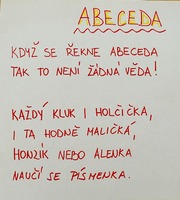 ABECEDA
KDYŽ SE ŘEKNE ABECEDA
TAK TO NENÍ ŽÁDNÁ VĚDA!
KAŽDÝ KLUK I HOLČIČKA,
I TA HODNĚ MALIČKÁ,
HONZÍK NEBO ALENKA
NAUČÍ SE PÍSMENKA.